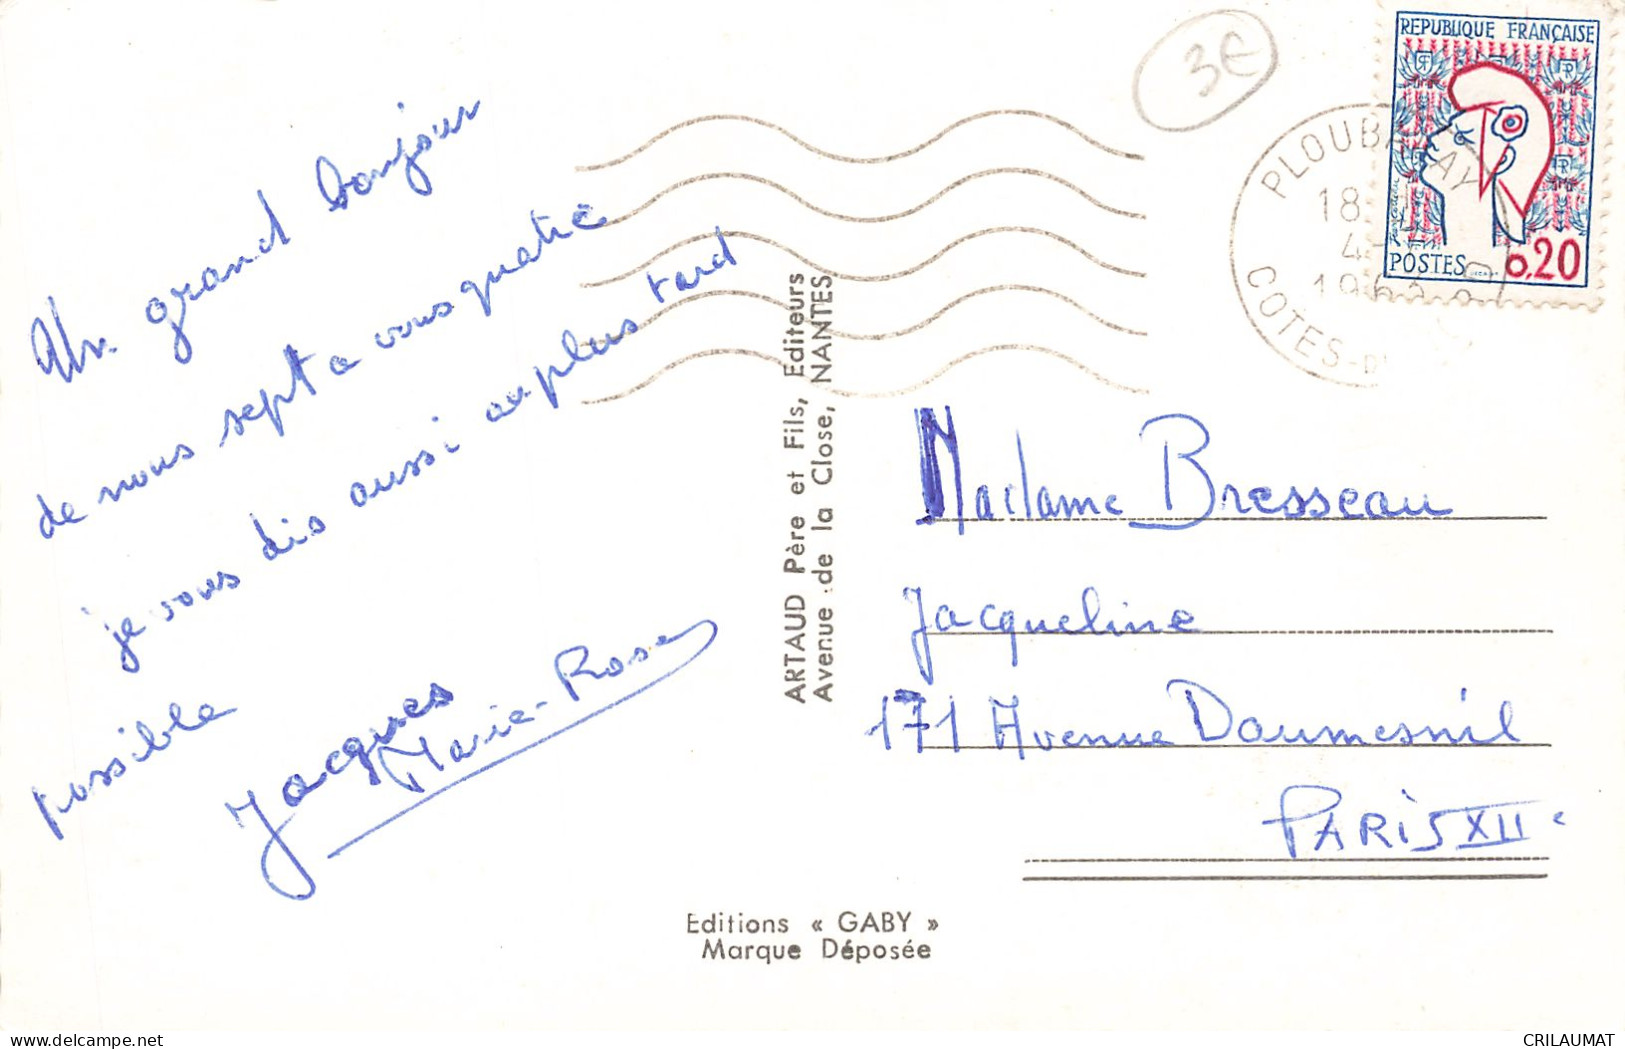 Un grand bonjour
de nous sept a vous quatre
je vous dis aussi au plus tard
possible
Jacques
Marie-Rose
ARTAUD Père et Fils, Editeurs
Avenue de la Close, NANTES
Editions « GABY »
Marque Déposée
3€
REPUBLIQUE FRANÇAISE
RF
POSTES
0,20
PLOUBALAY
18
4-
196
COTES-D
Madame Bresseau
Jacqueline
171 Avenue Daumesnil
PARIS XII e
delcampe.net
CRILAUMAT